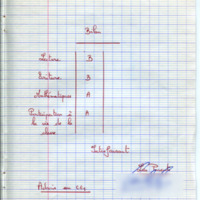 Bilan
Lecture B
Ecriture B
Mathématiques A
Participation à A
la vie de la
classe
Satisfaisant
Admis en CE2